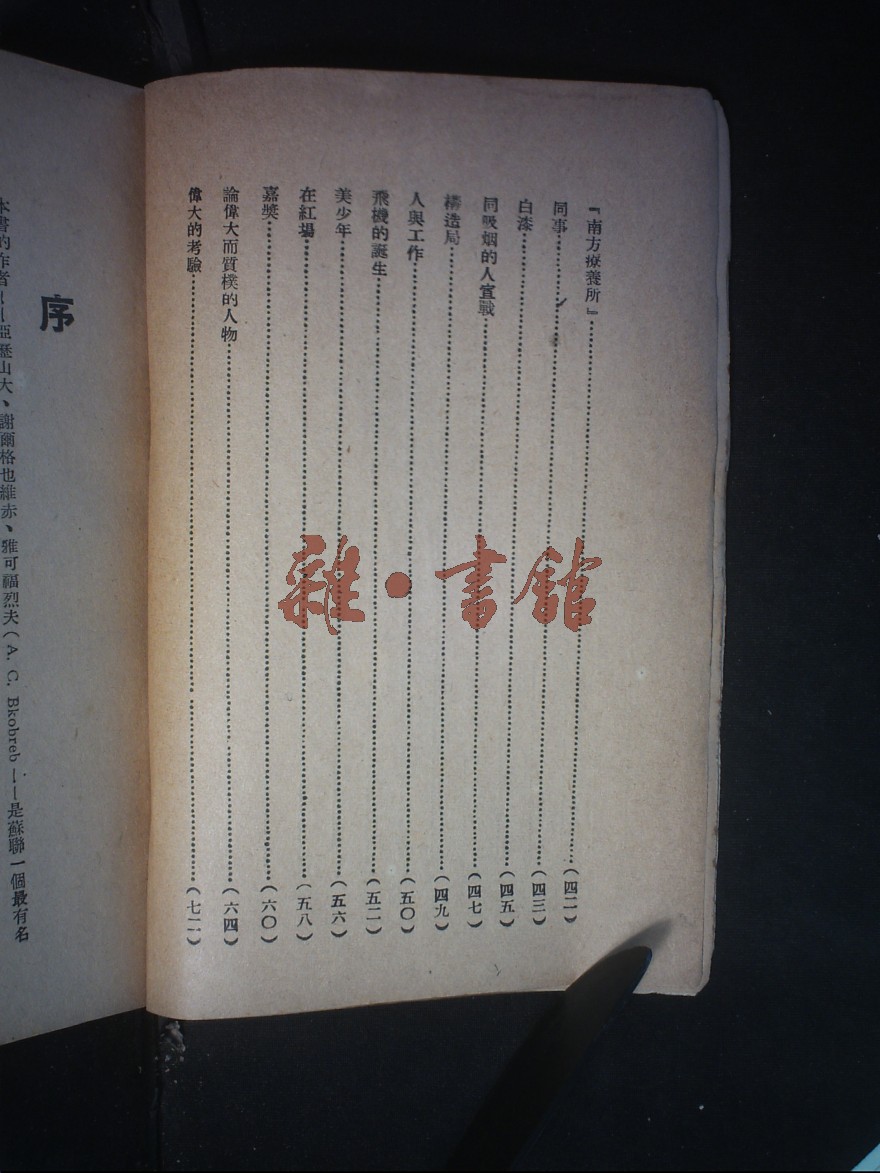 『南方療養所』……(四二)
同事……(四三)
白漆……(四五)
同吸烟的人宣戰……(四七)
構造局……(四九)
人與工作……(五〇)
飛機的誕生……(五二)
美少年……(五六)
在紅場……(五八)
嘉獎……(六〇)
論偉大而質樸的人物……(六四)
偉大的考驗……(七二)
序
本書的作者——亞歷山大、謝爾格也維赤、雅可福烈夫(A. C. Bkobreb——是蘇聯一個最有名
雜·書館